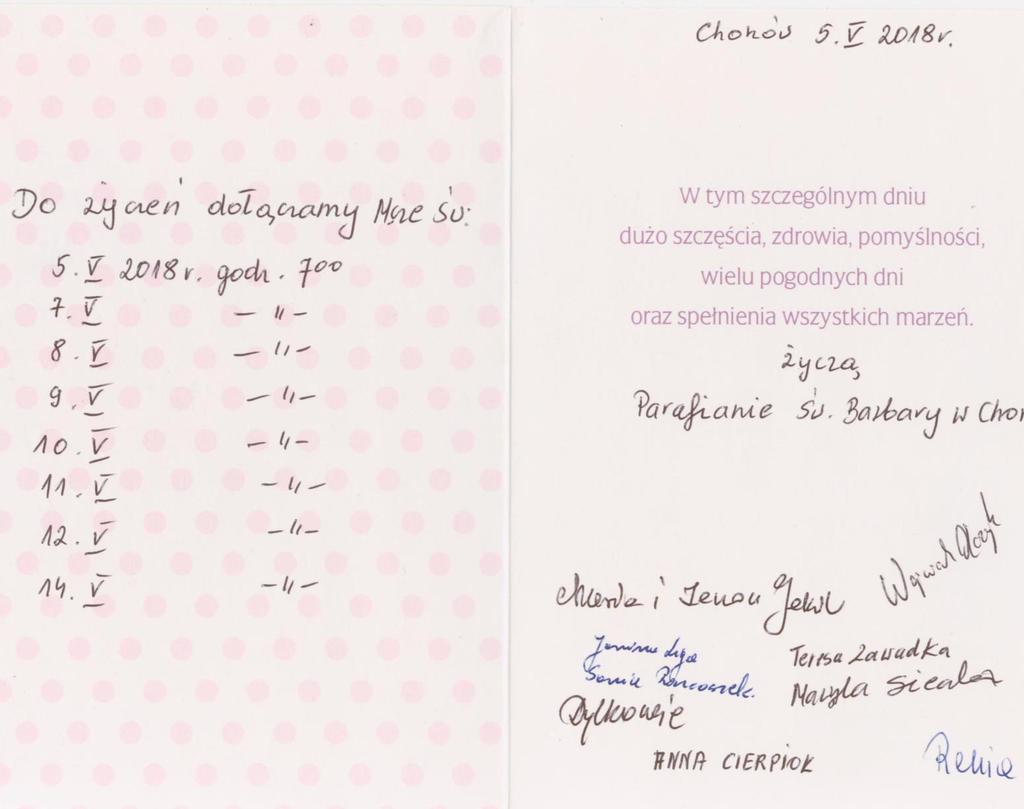 Do życzeń dołączamy Msze Św:
5. V 2018 r. godz. 7 00
7. V — " —
8. V — " —
9. V — " —
10. V — " —
11. V — " —
12. V — " —
14. V — " —
Chorzów 5. V 2018 r.
W tym szczególnym dniu
dużo szczęścia, zdrowia, pomyślności,
wielu pogodnych dni
oraz spełnienia wszystkich marzeń.
życzą
Parafianie Św. Barbary w Chor
i
Teresa Zawadka
Maryla
Dylkowie
ANNA CIERPIOK
Renia